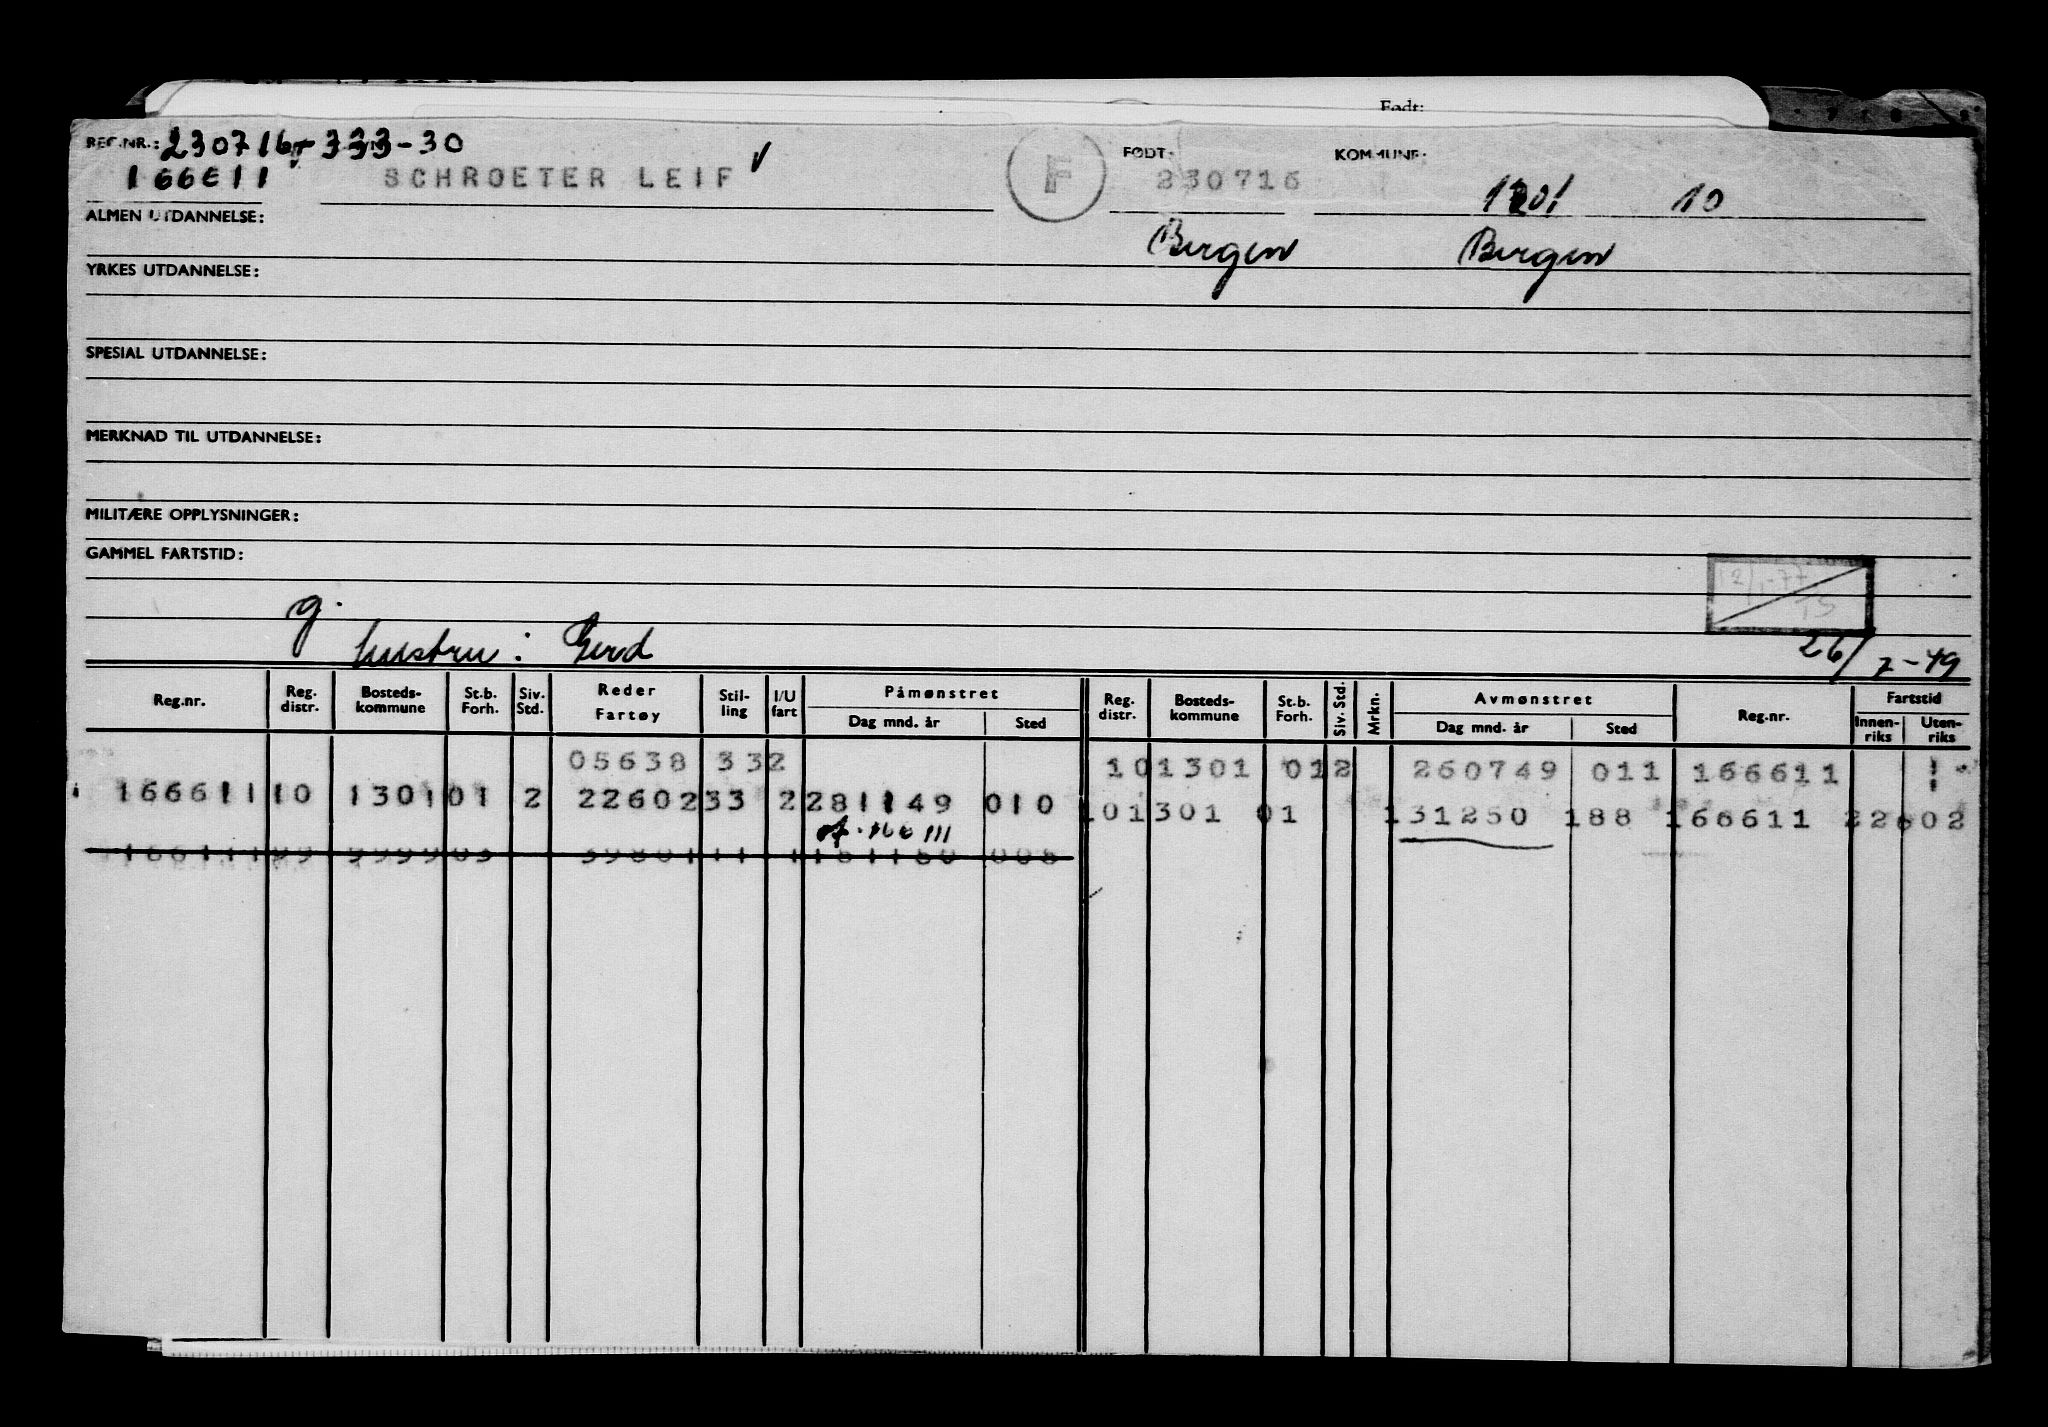 Født:
REG.NR.: 230716+333-30
166611 SCHROETER LEIF V F FØDT: 230716 KOMMUNE: 1301 10
ALMEN UTDANNELSE: Bergen Bergen
YRKES UTDANNELSE:
SPESIAL UTDANNELSE:
MERKNAD TIL UTDANNELSE:
MILITÆRE OPPLYSNINGER:
GAMMEL FARTSTID:
g.
hustru: Gerd 26/7-49
Reg.nr. Reg. distr. Bosteds-kommune St.b. Forh. Siv. Std. Reder Fartøy Stil-ling I/U fart Påmønstret Dag mnd. år Sted Reg. distr. Bosteds-kommune St.b. Forh. Siv. Std. Mrkn. Avmønstret Dag mnd. år Sted Reg.nr. Fartstid Innen-riks Uten-riks
05638 33 2 10 1301 01 2 260749 011 166611
166611 10 1301 01 2 22602 33 2 281149 010 10 1301 01 131250 188 166611 22602
166111 99 9999 03 39801 11 1 181150 008